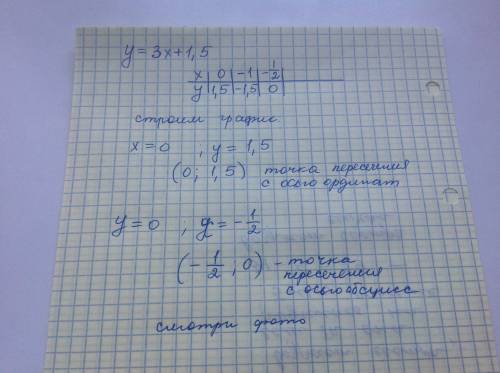 y = 3x + 1,5
x | 0 | -1 | -1/2
y | 1,5 | -1,5 | 0
строим график
x = 0 , y = 1,5
(0; 1,5) точка пересечения
с осью ординат
y = 0 ; y = -1/2
(-1/2 ; 0) - точка
пересечения
с осью абсцисс
смотри фото